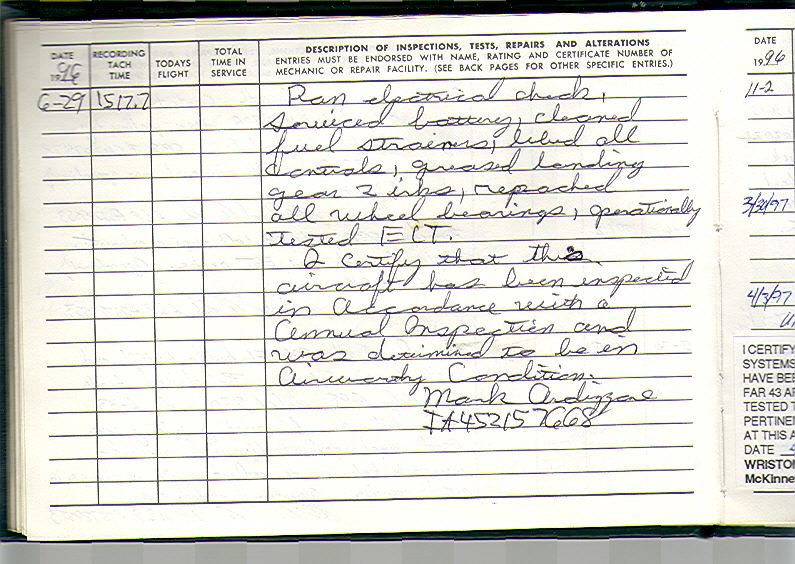 DATE
1996
RECORDING TACH TIME
TODAYS FLIGHT
TOTAL TIME IN SERVICE
DESCRIPTION OF INSPECTIONS, TESTS, REPAIRS AND ALTERATIONS
ENTRIES MUST BE ENDORSED WITH NAME, RATING AND CERTIFICATE NUMBER OF
MECHANIC OR REPAIR FACILITY. (SEE BACK PAGES FOR OTHER SPECIFIC ENTRIES.)
6-29 1517.7 Ran electrical check,
serviced battery, cleaned
fuel strainers, lubed all
controls, greased landing
gear zirks, repacked
all wheel bearings, operationally
tested ELT.
I certify that this
aircraft has been inspected
in accordance with a
Annual Inspection and
was determined to be in
Airworthy Condition.
Mark
IA452157668
DATE
1996
11-2
3/30/97
4/3/97
I CERTIFY
SYSTEMS
HAVE BEE
FAR 43 AP
TESTED T
PERTINEN
AT THIS A
DATE 4
WRISTON
McKinne